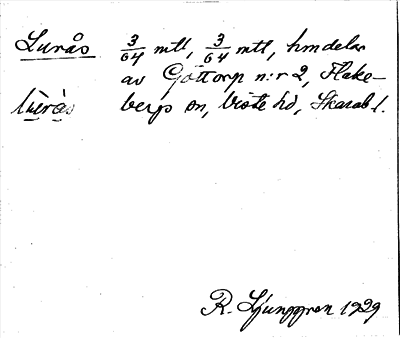 Lurås 3/64 mtl, 3/64 mtl, hmdelar
av Göttorp n:r 2, Flake-
bergs sn, Viste hd, Skarab l.
R. Ljunggren 1929